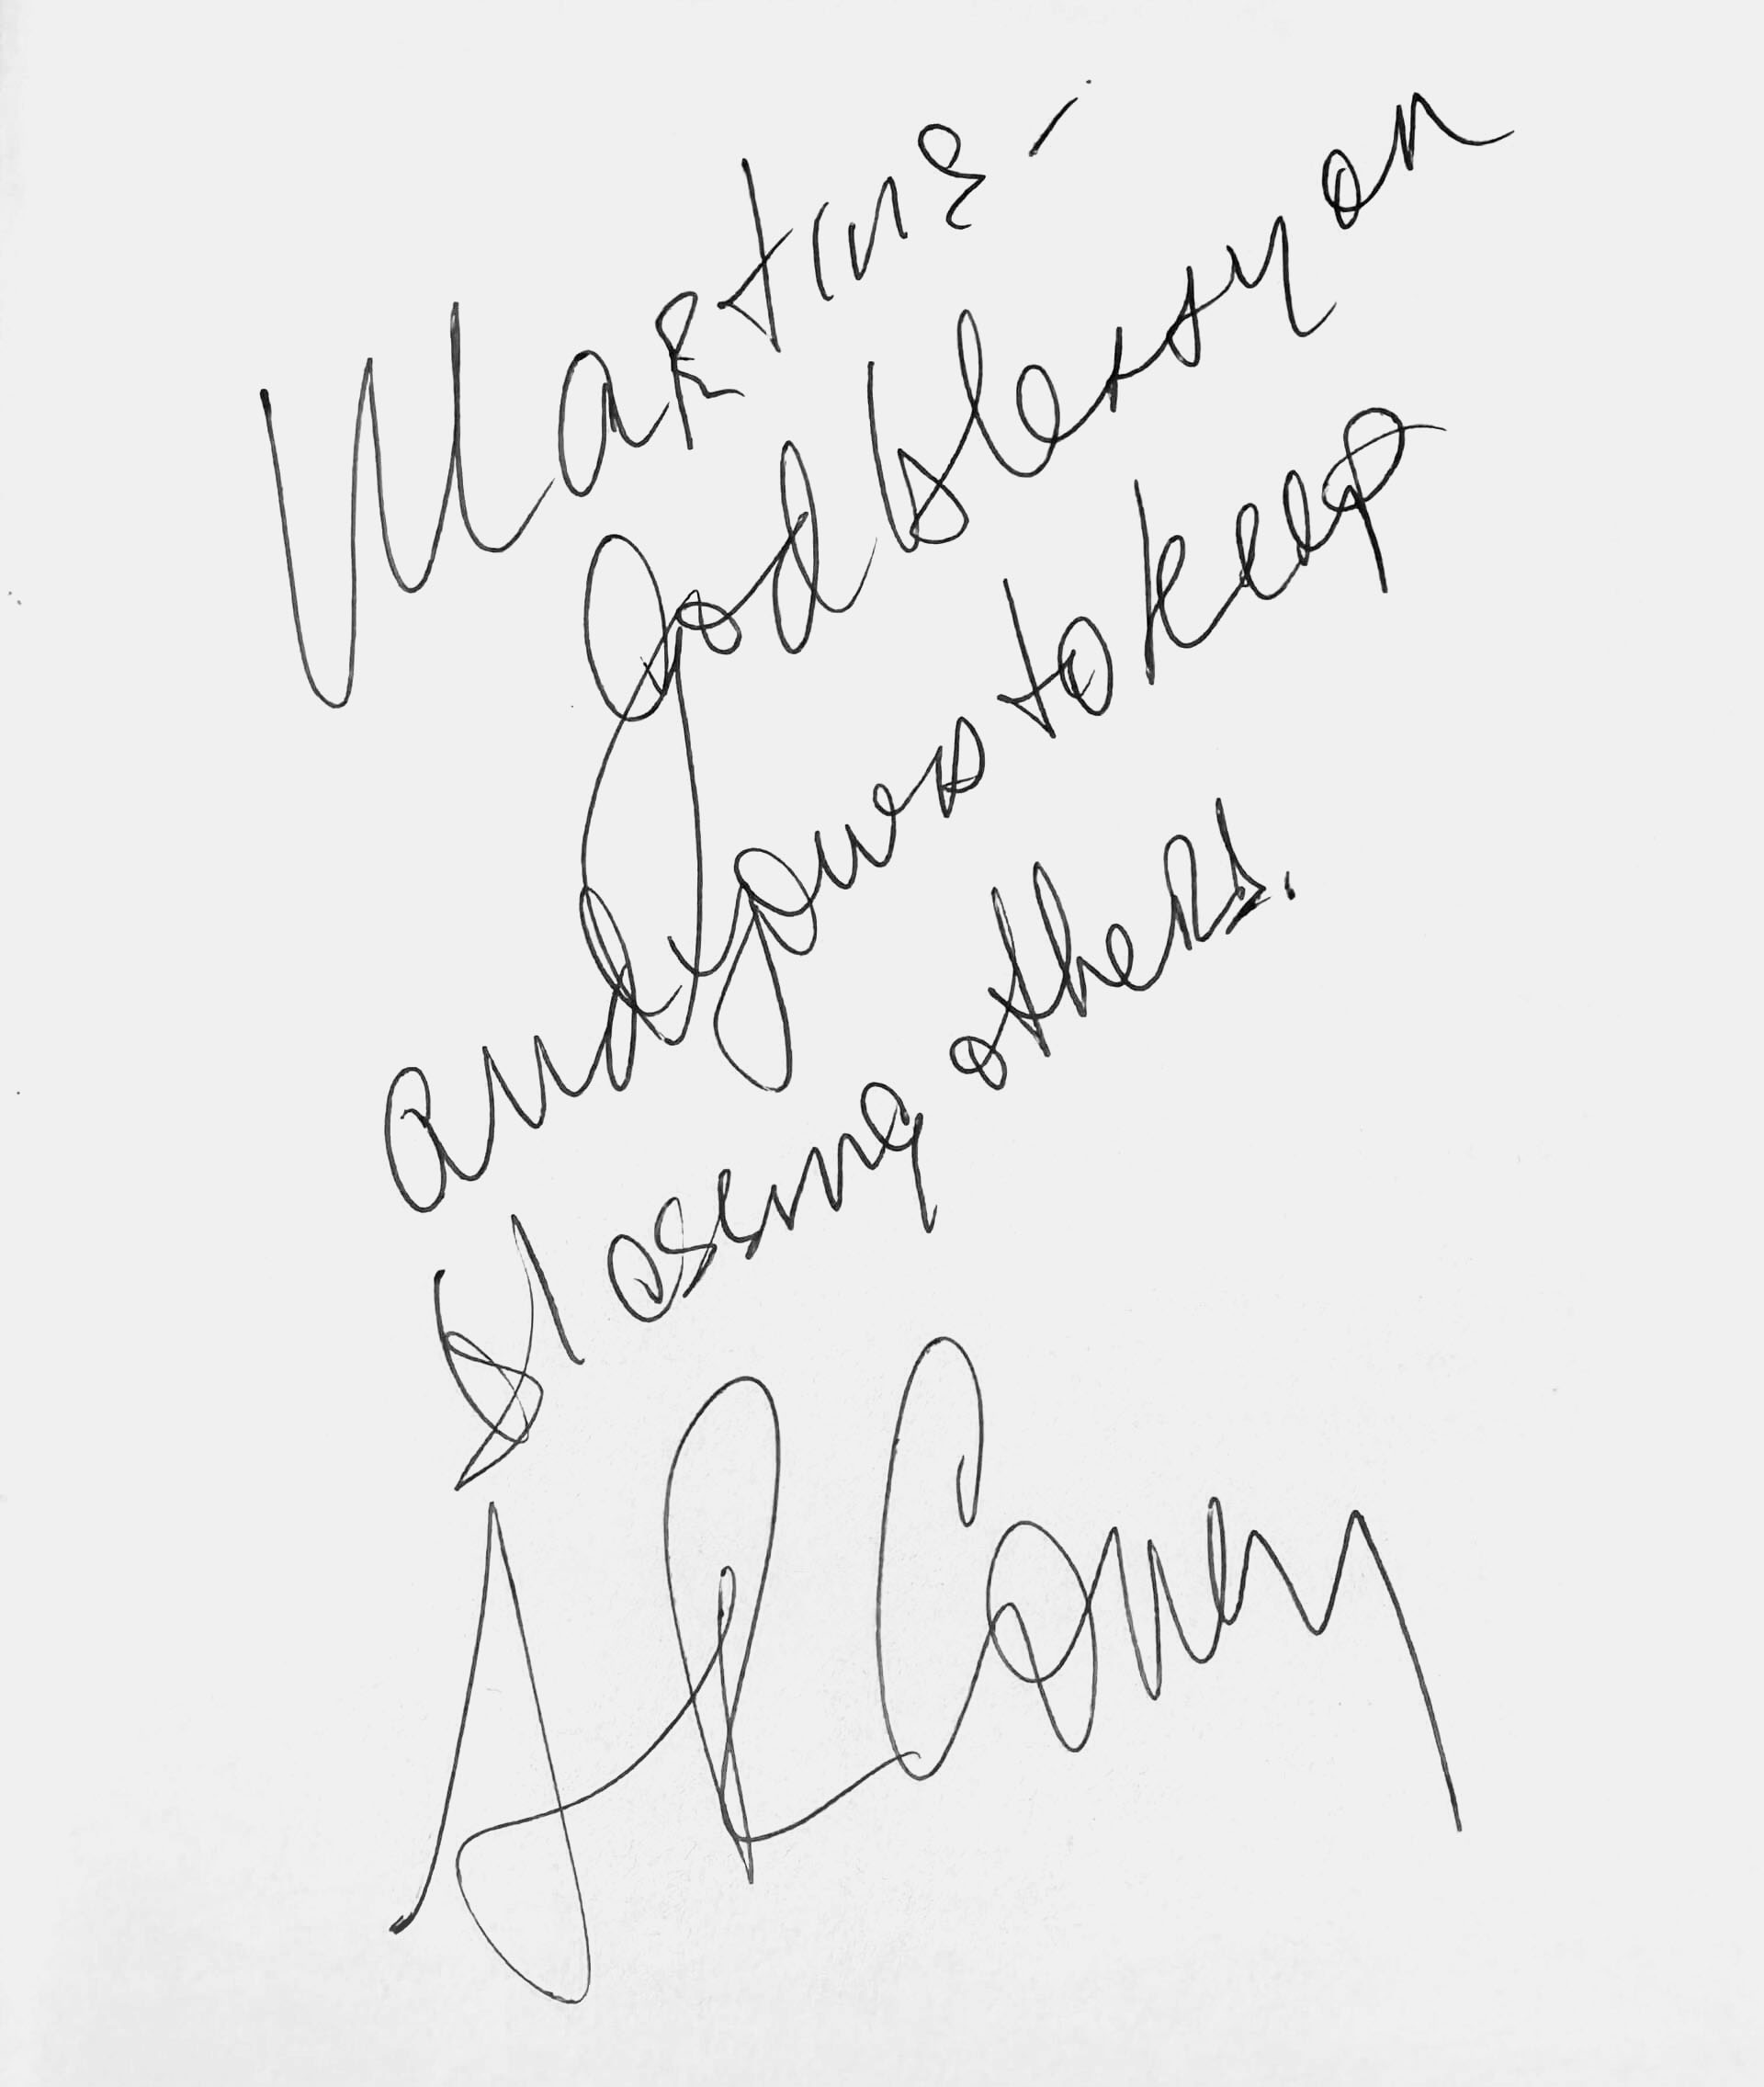 Martine -
God bless you
and yours to keep
blessing others.